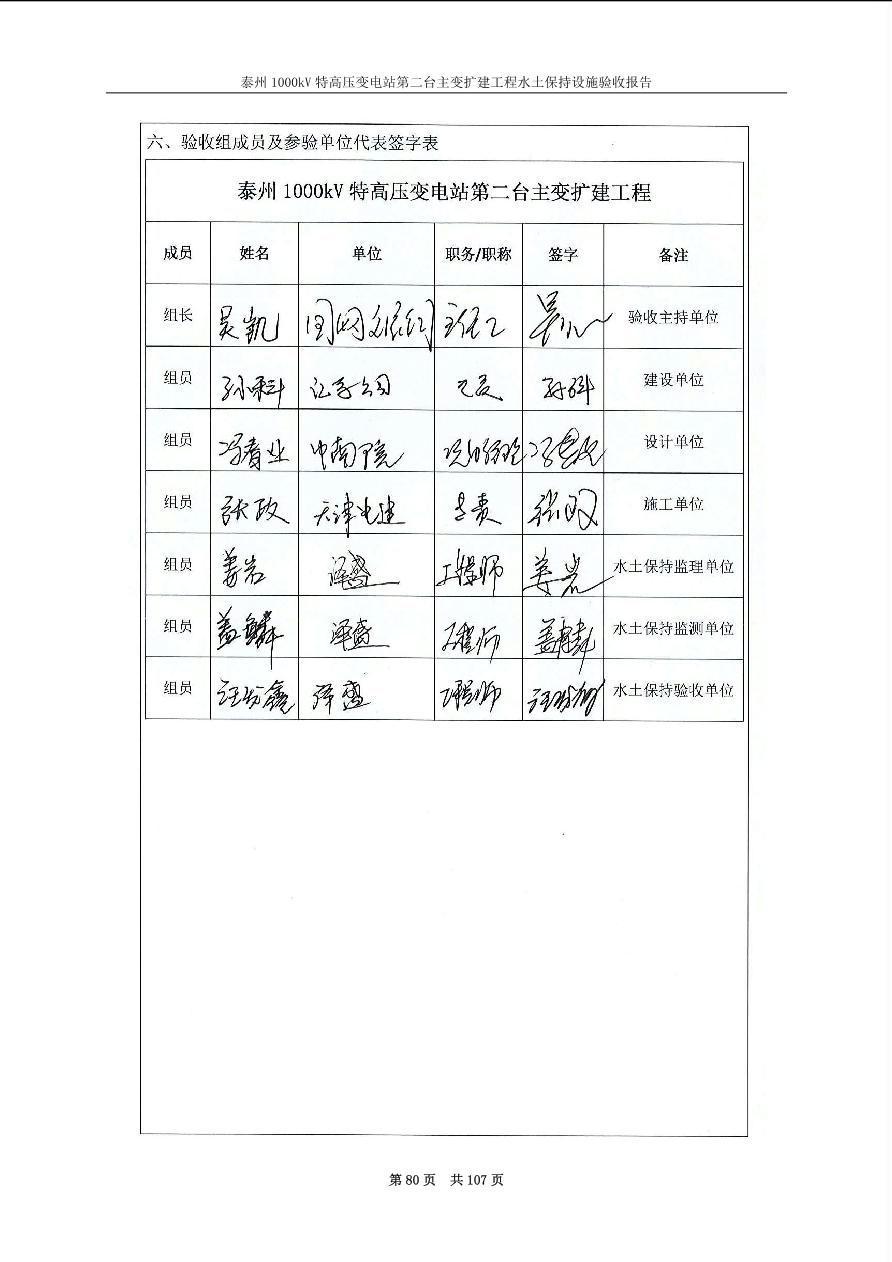 泰州 1000kV 特高压变电站第二台主变扩建工程水土保持设施验收报告
六、验收组成员及参验单位代表签字表
泰州 1000kV 特高压变电站第二台主变扩建工程
成员 姓名 单位 职务/职称 签字 备注
组长 吴凯 国网 吴 验收主持单位
组员 孙科 公司 孙科 建设单位
组员 冯春业 中南院 冯春业 设计单位
组员 张政 天津电建 专责 张政 施工单位
组员 姜岩 泽盛 工程师 姜岩 水土保持监理单位
组员 盖麟 泽盛 工程师 盖麟 水土保持监测单位
组员 泽盛 工程师 水土保持验收单位
第 80 页 共 107 页